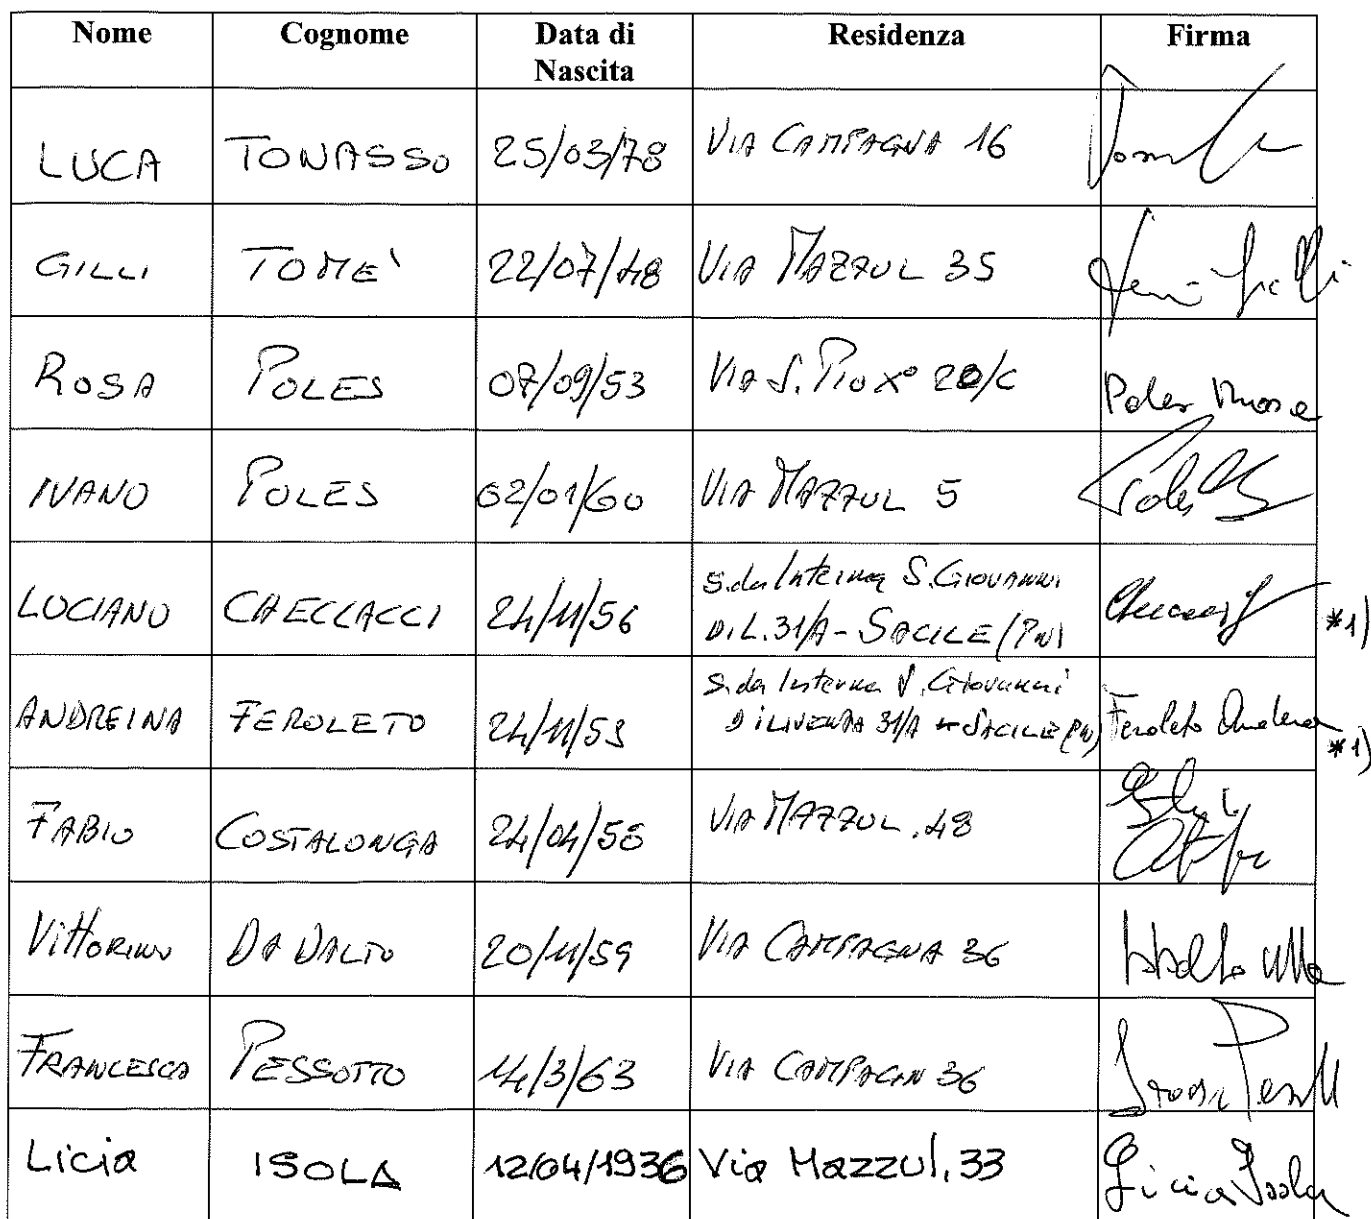 Nome Cognome Data di Nascita Residenza Firma
LUCA TONASSO 25/03/78 VIA CAMPAGNA 16
GILLI TOME' 22/07/48 VIA MAZZUL 35
ROSA POLES 07/09/53 VIA S. PIO X° 20/C Poles Rosa
IVANO POLES 02/01/60 VIA MAZZUL 5 Poles
LUCIANO CHECCACCI 24/11/56 S.da Interna S. GIOVANNI
D.L. 31/A - SACILE (PN) *1)
ANDREINA FEROLETO 24/11/53 S.da Interna S. Giovanni
DI LIVENZA 31/A - SACILE (PN) Feroleto Andreina *1)
FABIO COSTALONGA 24/04/58 VIA MAZZUL, 48
VittORINO DA DALTO 20/11/59 VIA CAMPAGNA 36
FRANCESCA PESSOTTO 14/3/63 VIA CAMPAGN 36
Licia ISOLA 12/04/1936 Via Mazzul, 33 Licia Isola